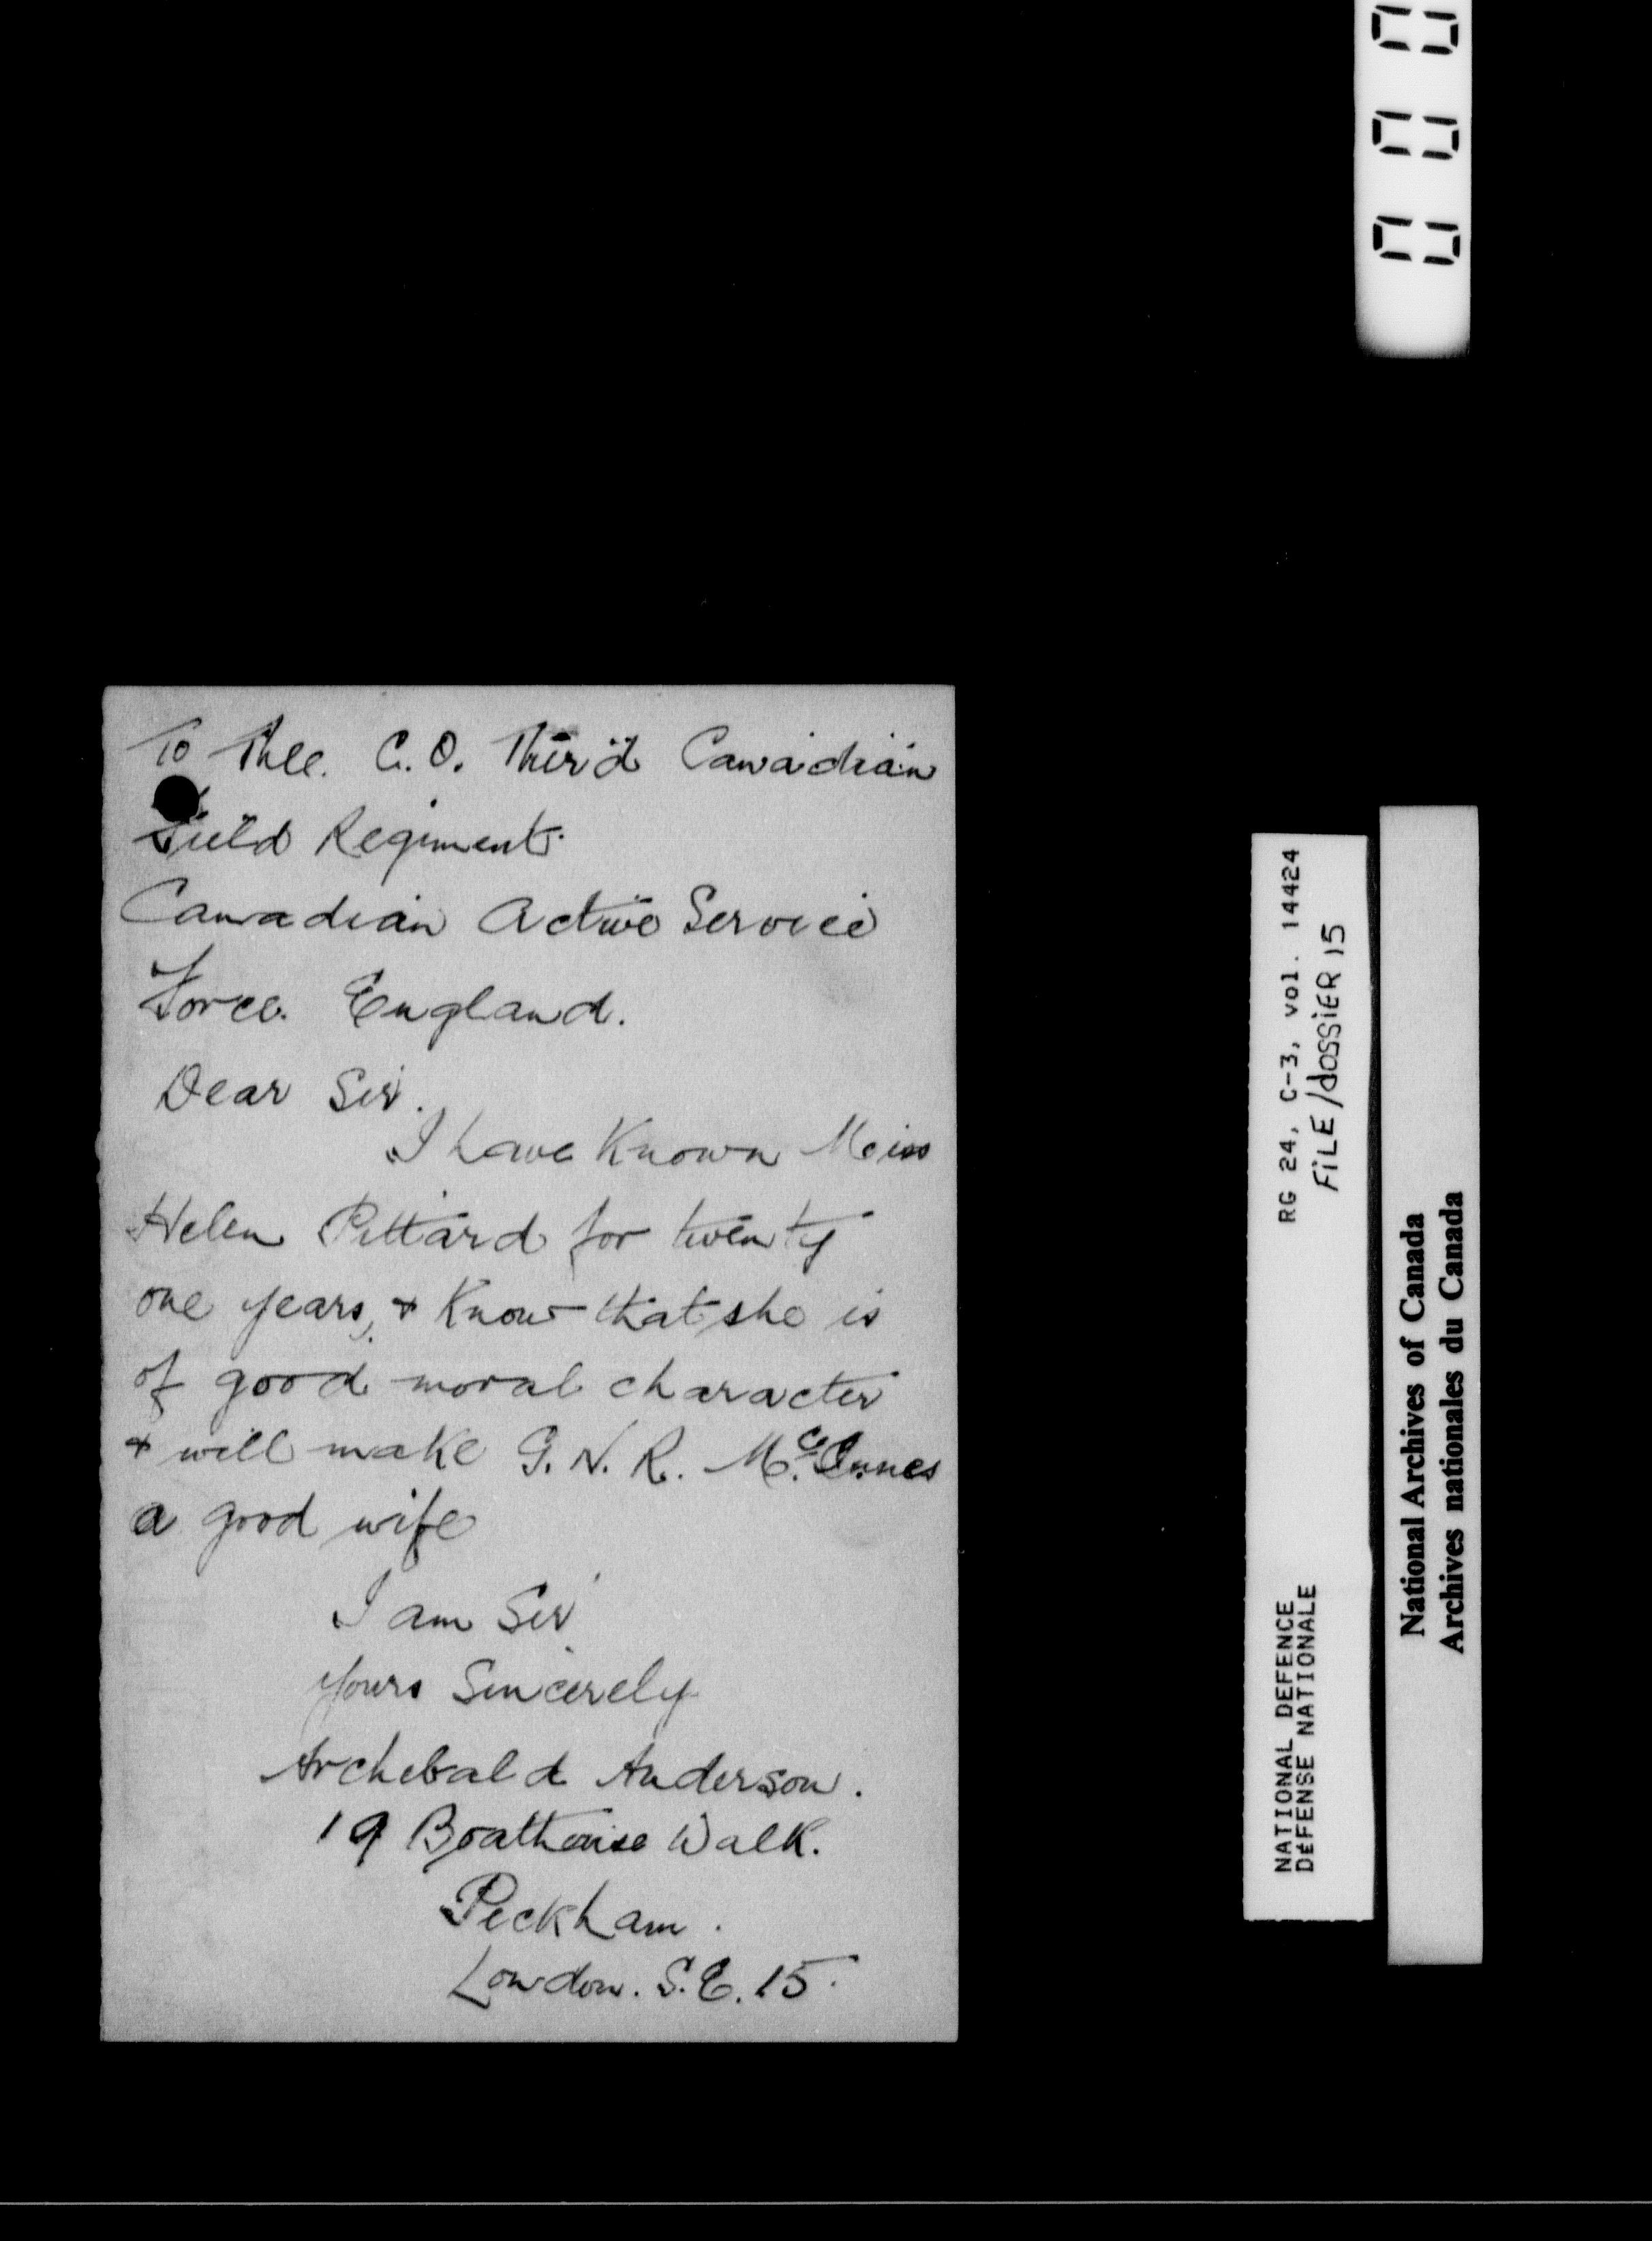 To Thee. C.O. Third Canadian
Field Regiment.
Canadian Active Service
Force. England.
Dear Sir.
I have Known Miss
Helen Pittard for twenty
one years, & Know that she is
of good moral character
& will make G. N. R. McInnes
a good wife
I am Sir
yours Sincerely
Archebald Anderson.
19 Boathouse Walk.
Peckham.
London. S.E. 15.
000
RG 24, C-3, vol. 14424
FiLE/dOSSiER 15
NATIONAL DEFENCE
DéFENSE NATIONALE
National Archives of Canada
Archives nationales du Canada